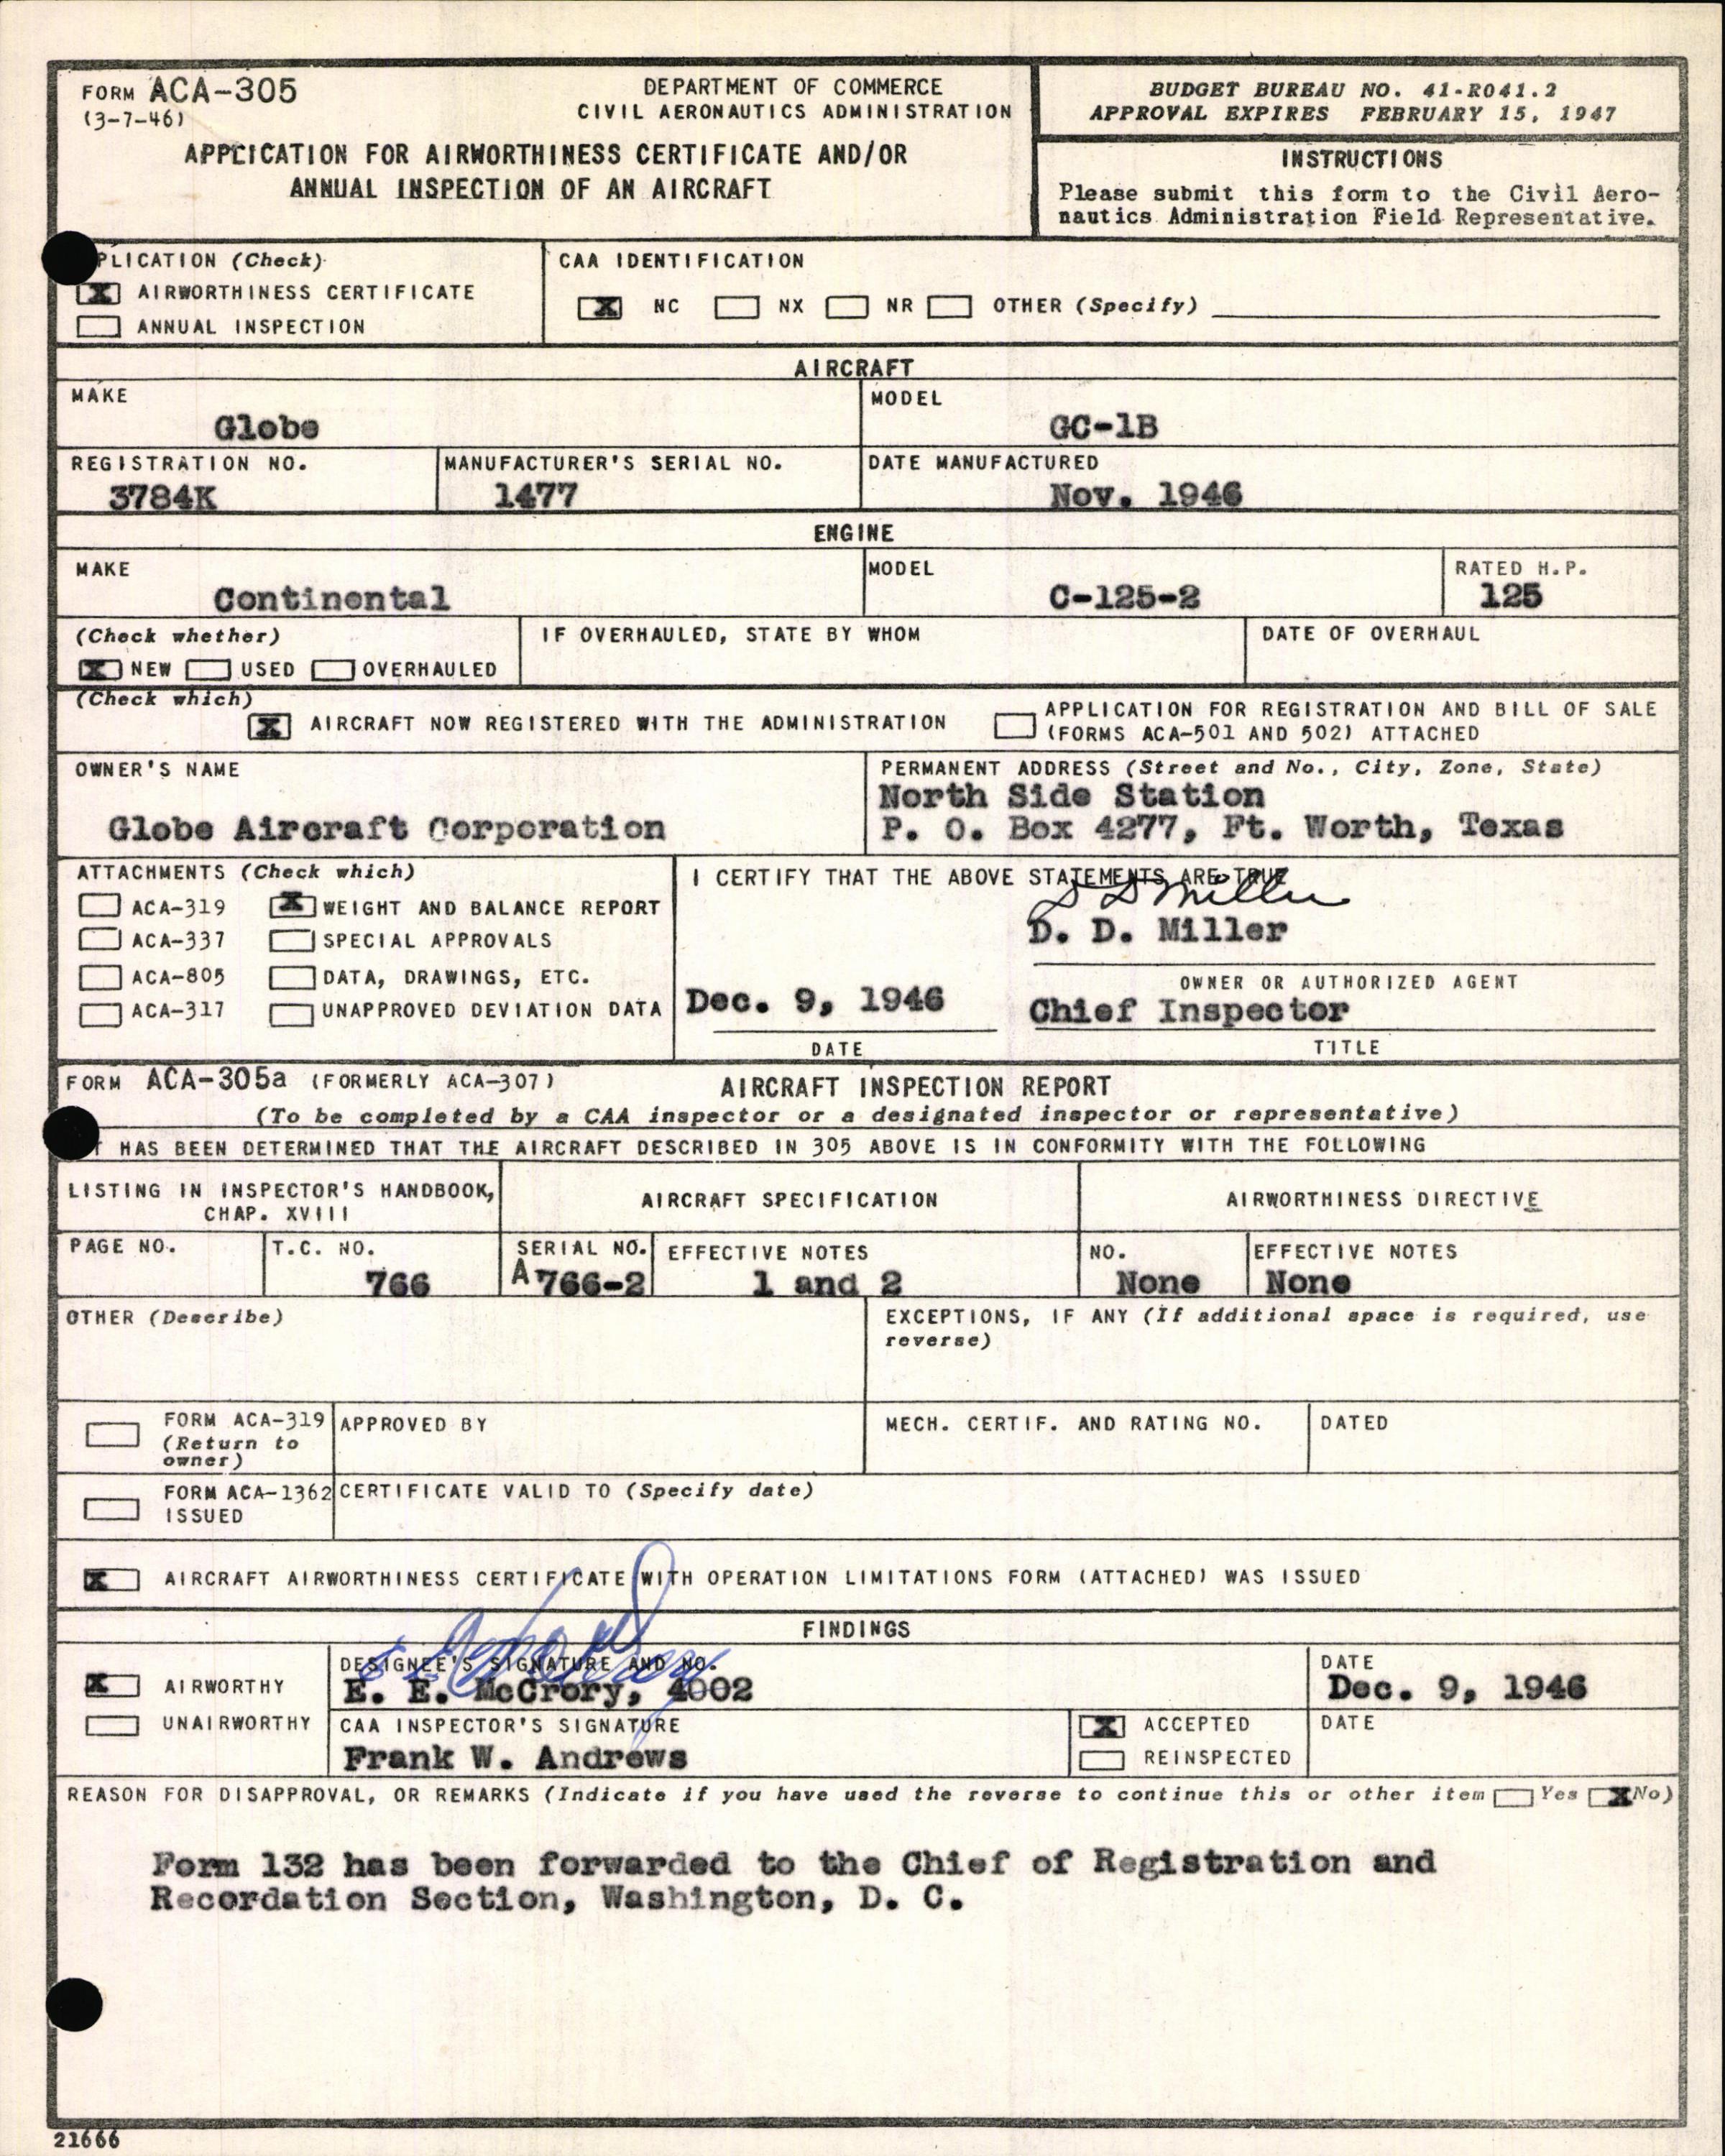 FORM ACA-305
(3-7-46)
DEPARTMENT OF COMMERCE
CIVIL AERONAUTICS ADMINISTRATION
APPLICATION FOR AIRWORTHINESS CERTIFICATE AND/OR
ANNUAL INSPECTION OF AN AIRCRAFT
BUDGET BUREAU NO. 41-R041.2
APPROVAL EXPIRES FEBRUARY 15, 1947
INSTRUCTIONS
Please submit this form to the Civil Aero-
nautics Administration Field Representative.
PLICATION (Check)
X AIRWORTHINESS CERTIFICATE
ANNUAL INSPECTION
CAA IDENTIFICATION
X NC NX NR OTHER (Specify)
AIRCRAFT
MAKE
Globe
MODEL
GC-1B
REGISTRATION NO.
3784K
MANUFACTURER'S SERIAL NO.
1477
DATE MANUFACTURED
Nov. 1946
ENGINE
MAKE
Continental
MODEL
C-125-2
RATED H.P.
125
(Check whether)
X NEW USED OVERHAULED
IF OVERHAULED, STATE BY WHOM
DATE OF OVERHAUL
(Check which)
X AIRCRAFT NOW REGISTERED WITH THE ADMINISTRATION
APPLICATION FOR REGISTRATION AND BILL OF SALE
(FORMS ACA-501 AND 502) ATTACHED
OWNER'S NAME
Globe Aircraft Corporation
PERMANENT ADDRESS (Street and No., City, Zone, State)
North Side Station
P. O. Box 4277, Ft. Worth, Texas
ATTACHMENTS (Check which)
ACA-319 X WEIGHT AND BALANCE REPORT
ACA-337 SPECIAL APPROVALS
ACA-805 DATA, DRAWINGS, ETC.
ACA-317 UNAPPROVED DEVIATION DATA
I CERTIFY THAT THE ABOVE STATEMENTS ARE TRUE
D D Miller
D. D. Miller
OWNER OR AUTHORIZED AGENT
Dec. 9, 1946
DATE
Chief Inspector
TITLE
FORM ACA-305a (FORMERLY ACA-307)
AIRCRAFT INSPECTION REPORT
(To be completed by a CAA inspector or a designated inspector or representative)
T HAS BEEN DETERMINED THAT THE AIRCRAFT DESCRIBED IN 305 ABOVE IS IN CONFORMITY WITH THE FOLLOWING
LISTING IN INSPECTOR'S HANDBOOK,
CHAP. XVIII
AIRCRAFT SPECIFICATION
AIRWORTHINESS DIRECTIVE
PAGE NO.
T.C. NO.
766
SERIAL NO.
A 766-2
EFFECTIVE NOTES
1 and 2
NO.
None
EFFECTIVE NOTES
None
OTHER (Describe)
EXCEPTIONS, IF ANY (If additional space is required, use
reverse)
FORM ACA-319
(Return to
owner)
APPROVED BY
MECH. CERTIF. AND RATING NO.
DATED
FORM ACA-1362
ISSUED
CERTIFICATE VALID TO (Specify date)
X AIRCRAFT AIRWORTHINESS CERTIFICATE WITH OPERATION LIMITATIONS FORM (ATTACHED) WAS ISSUED
FINDINGS
X AIRWORTHY
UNAIRWORTHY
DESIGNEE'S SIGNATURE AND NO.
E. E. McCrory, 4002
DATE
Dec. 9, 1946
CAA INSPECTOR'S SIGNATURE
Frank W. Andrews
X ACCEPTED
REINSPECTED
DATE
REASON FOR DISAPPROVAL, OR REMARKS (Indicate if you have used the reverse to continue this or other item Yes X No)
Form 132 has been forwarded to the Chief of Registration and
Recordation Section, Washington, D. C.
21666